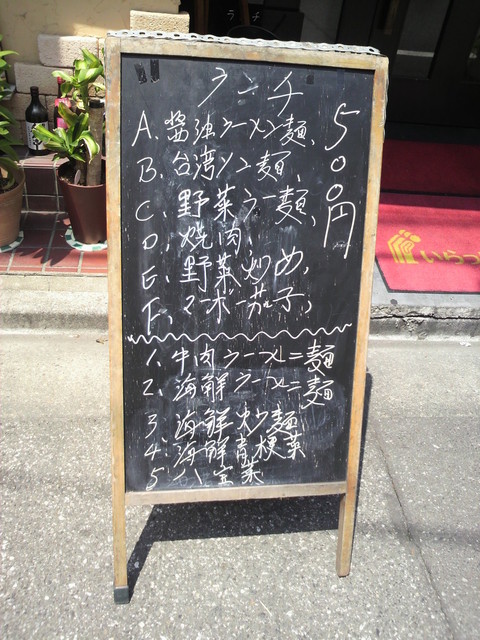 ラチ
ランチ
500円
A、醤油ラーメン麺、
B、台湾ラーメン麺、
C、野菜ラー麺、
D、焼肉、
E、野菜炒め、
F、マーボー茄子、
1、牛肉ラーメン=麺
2、海鮮ラーメン=麺
3、海鮮炒麺
4、海鮮青梗菜
5、八宝菜
いらっ